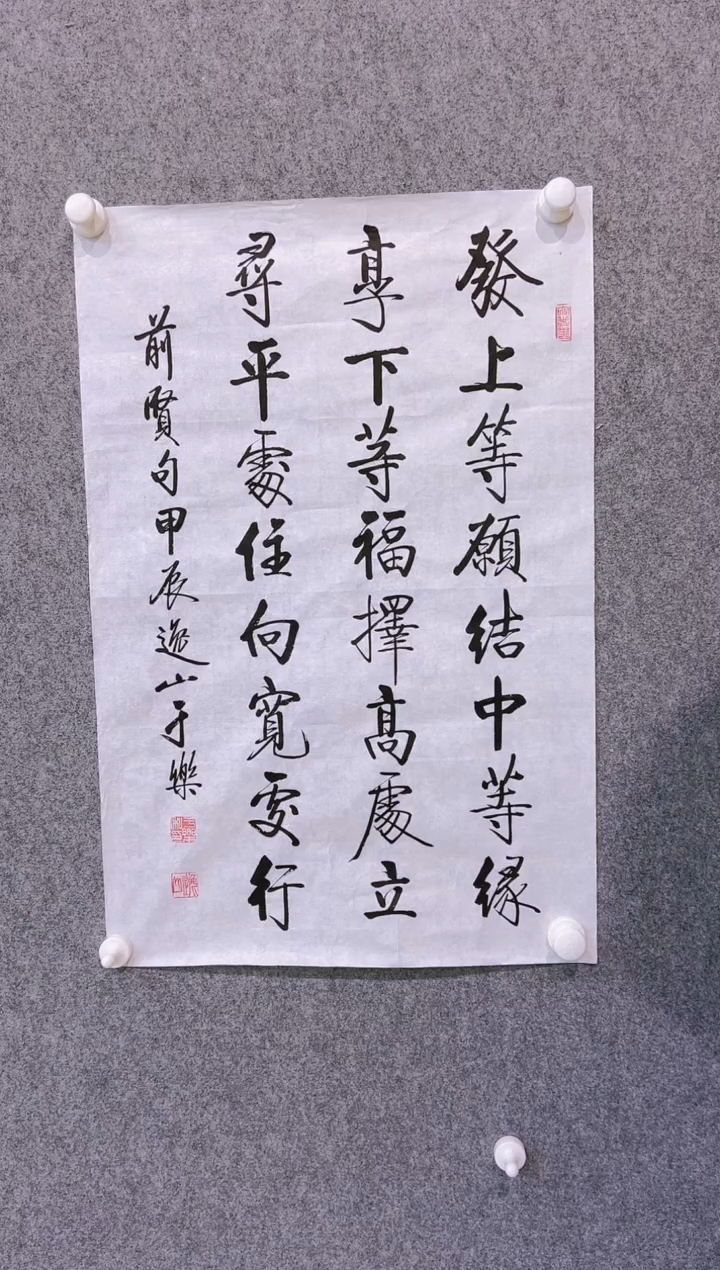 發上等願結中等緣
享下等福擇高處立
尋平處住向寬處行
前賢句甲辰逸山于樂